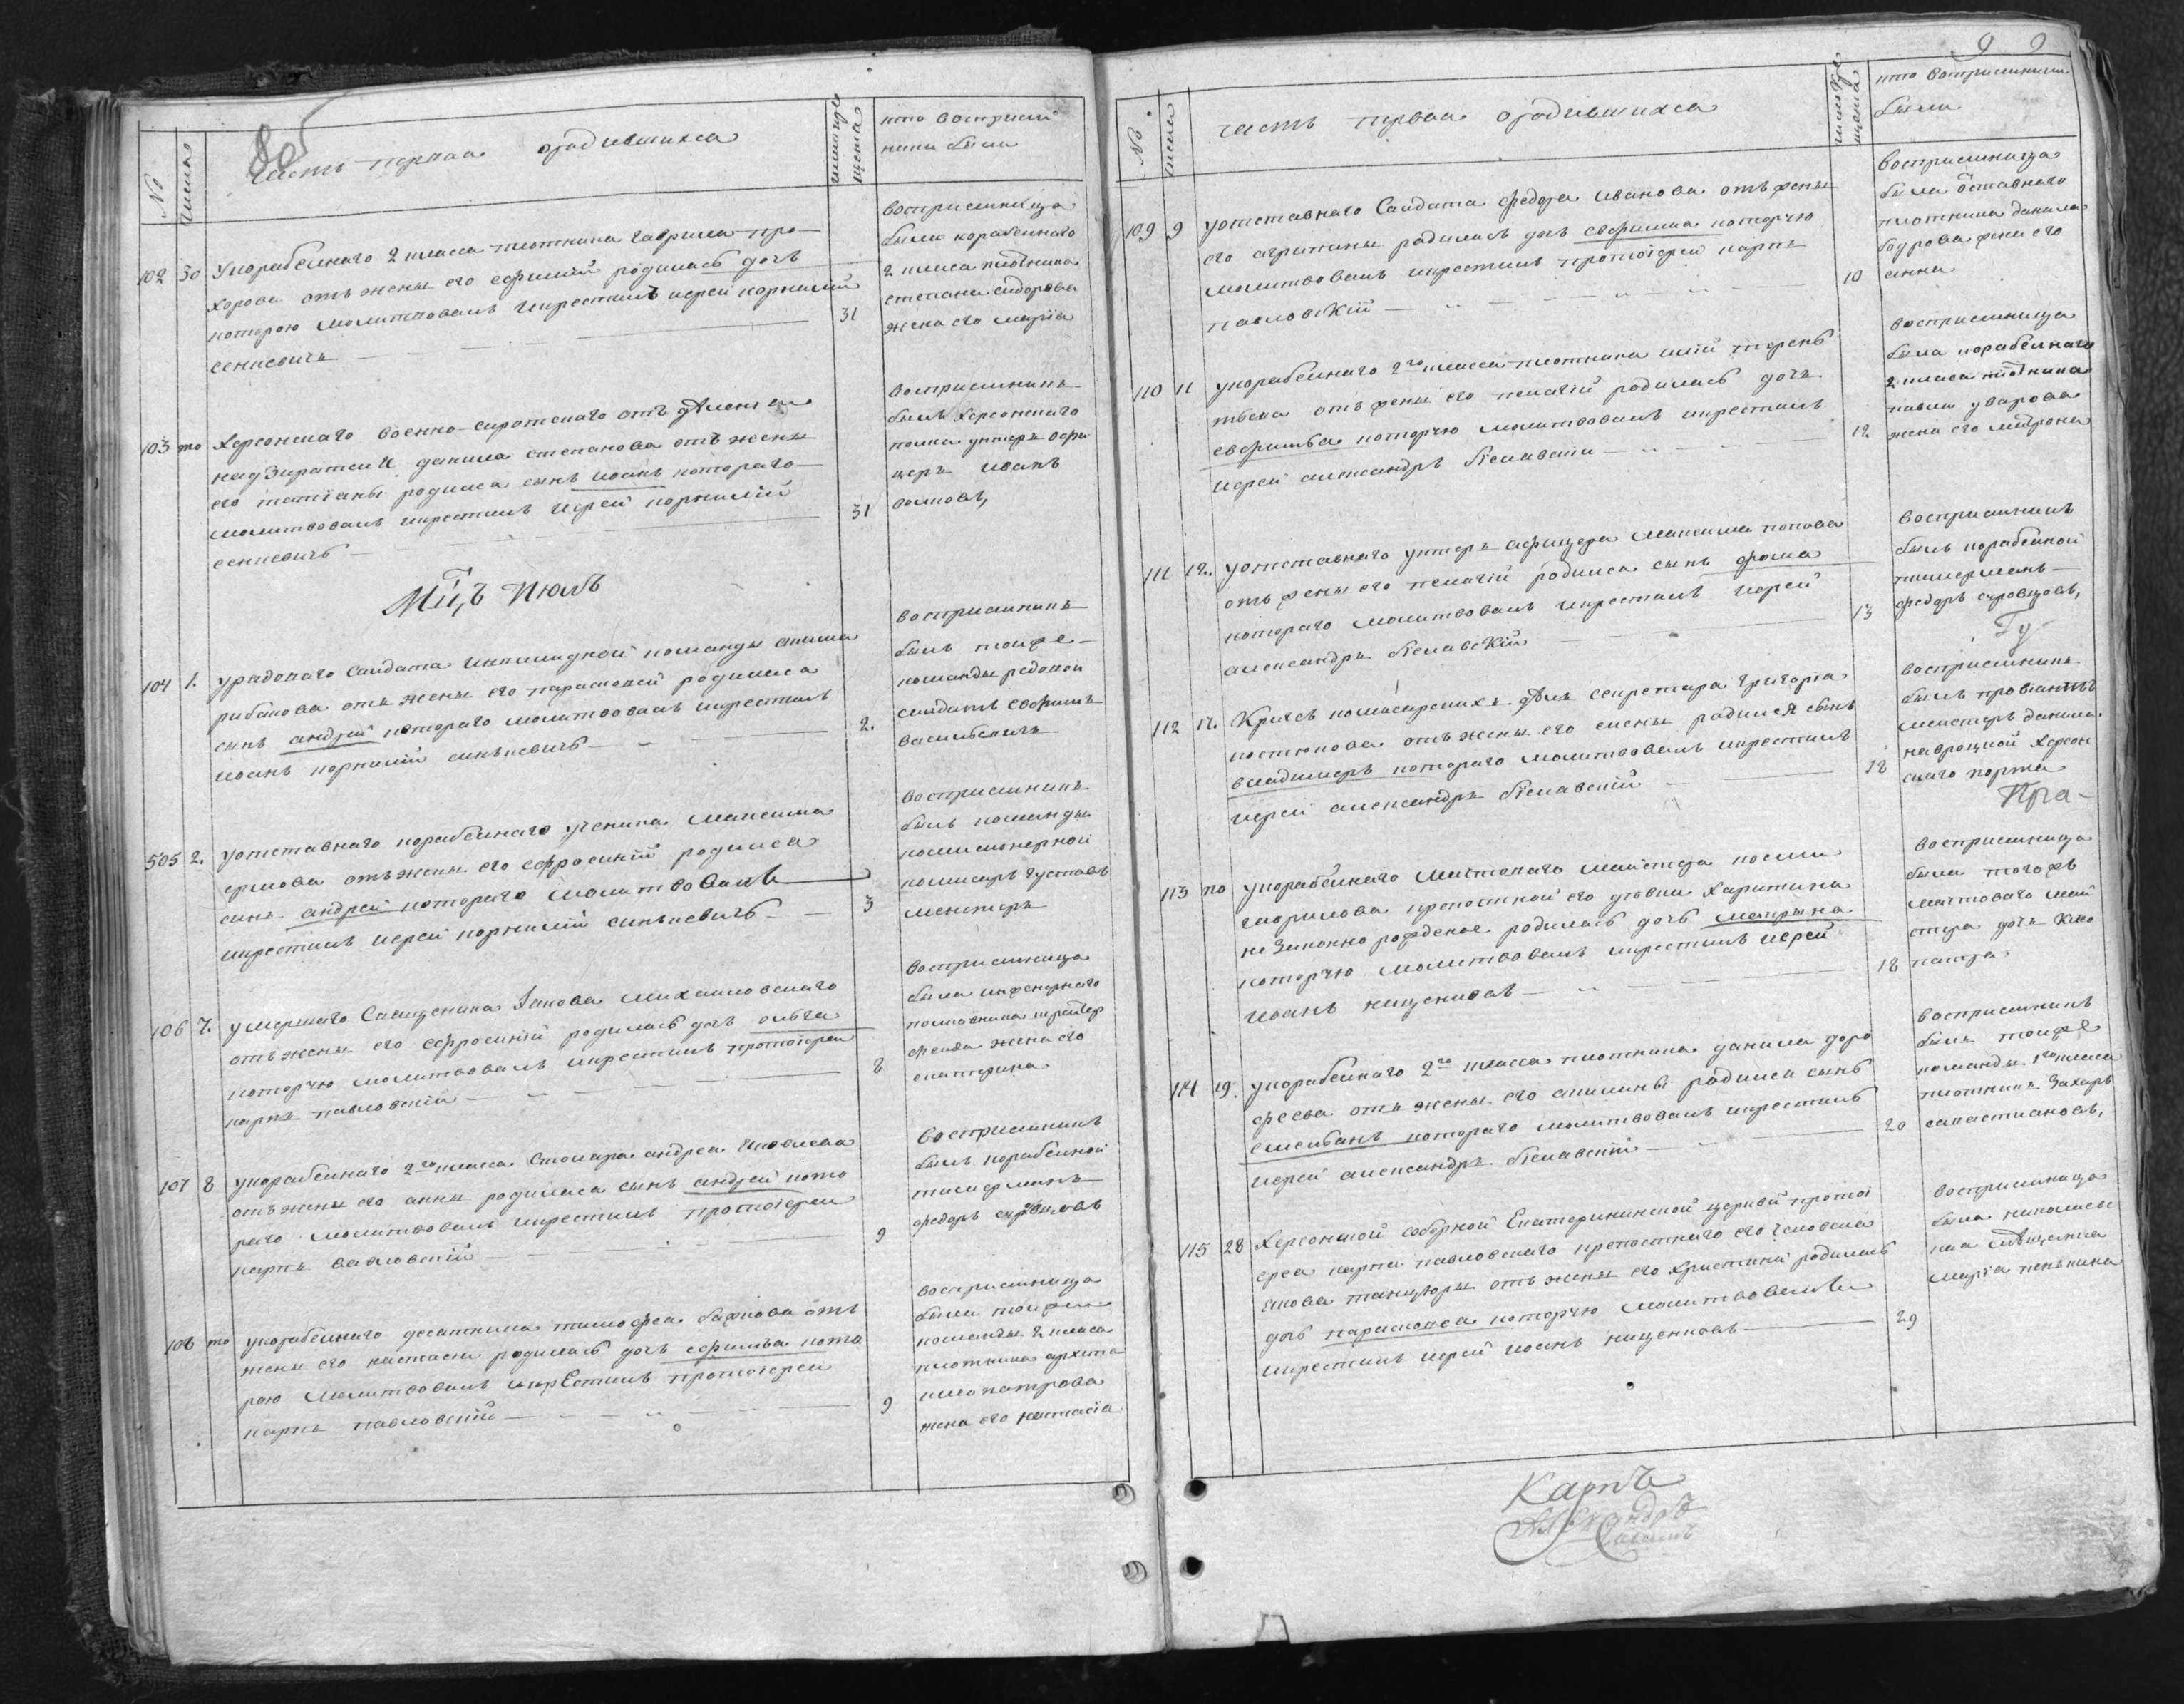 80
№
числа
часть первая ородившихса
когда
щена
кто восприем
ники были
102 30 Укорабелнаго 2 класса плотника гаврила про-
хорова отъ жены его ефимии родилась дочь
которою молитвовалъ икрестилъ иерей корнилий
сенкевичъ
31
восприемница
была корабелнаго
2 класа плотника
степана сидорова
жена его мариа
103 то Херсонскаго военно-сиротскаго отъ деления
надзирателя данила степанова отъ жены
его татианы родился сынъ иоанъ котораго
молитвовалъ икрестилъ иерей корнилий
сенкевичъ
31
восприемникъ
былъ херсонскаго
полка унтеръ офи
церъ иоанъ
волковъ,
Мцъ Июль
104 1. урядоваго салдата команды
рибакова отъ жены его параскевии родился
сынъ андрей котораго молитвовалъ икрестилъ
иоанъ корнилий синкевичъ
2.
восприемникъ
былъ тойже
команды рядовой
салдатъ ефимъ
василевичъ
505 2. уотставнаго корабелнаго ученика максима
ермова отъ жены его ефросинии родился
синъ андрей котораго молитвовалъ
икрестилъ иерей корнилий синкевичъ
3
восприемникъ
былъ команды
комисионерной
комисаръ густавъ
менстеръ
106 7. умершаго священика Iакова михаиловскаго
отъ жены его ефросинии родилась дочь олга
которую молитвовалъ икрестилъ протоиерей
карпъ павловский
8
восприемница
была инженернаго
полковника
жена его
екатерина
107 8 укорабелнаго 2го класа столяра андрея Яковлева
отъ жены его анны родился сынъ андрей кото
раго молитвовалъ икрестилъ протоиерей
карпъ павловский
9
восприемникъ
былъ корабелной
тимерманъ
федоръ суровцовъ
108 то укорабелнаго десятника тимофея бажкова отъ
жены его настасии родилась дочь ефимья кото
рою молитвовалъ икрестилъ протоиерей
карпъ павловский
9
восприемница
была тойже
команды 2 класа
плотника архипа
жена его настасiа
9 9
№
числа
часть первая ородившихса
когда
щена
кто восприемники
были
109 9 уотставнаго Салдата федора иванова отъ жены
его агрипины родилась дочь евфимиа которую
молитвовалъ икрестилъ протоиерей карпъ
павловский
10
восприемница
была отставнаго
плотника данила
бодрова жена его
анна
110 11 укорабелнаго 2го класса плотника илии терень
тьева отъ жены его пелагии родилась дочь
евфимья которую молитвовалъ икрестилъ
иерей александръ белавский
12
восприемница
была корабелнаго
2 класа плотника
павла уварова
жена его матрона
111 12. уотставнаго унтеръ афицера максима попова
отъ жены его пелагии родился сынъ фома
котораго молитвовалъ икрестилъ иерей
александръ белавский
13
восприемникъ
былъ корабелной
тимерманъ
федоръ суровцовъ,
Гу-
112 17. Кригсъ комисарскихъ делъ секретаря григориа
костюкова отъ жены его елены родился сынъ
владимеръ котораго молитвовалъ икрестилъ
иерей александръ белавский
18
восприемникъ
былъ провиантъ
меистеръ данила
навроцкой херсон
скаго порта
Пра-
113 то укорабелнаго мачтоваго маистера косми
гаврилова крепостной его девки харитины
незаконно рожденое родилась дочь
которую молитвовалъ икрестилъ иерей
иоанъ нищенковъ
18
восприемница
была тогожъ
мачтоваго маи
стера дочь клео
патра
114 19. укорабелнаго 2го класса плотника данила доро
феева отъ жены его акилины родился сынъ
емелианъ котораго молитвовалъ икрестилъ
иерей александръ белавский
20
восприемникъ
былъ тойже
команды 1го класа
плотникъ захаръ
савастиановъ,
115 28 Херсонской соборной Екатерининской церквй протоi
ерея карпа павловскаго крепостнаго его человека
якова танцюры отъ жены его христины родилась
дочь параскевиа которую молитвовалъ
икрестилъ иерей иоанъ нищенковъ
29
восприемница
была николаевс
кая мещанка
мариа пенкина
Карпъ
Александръ